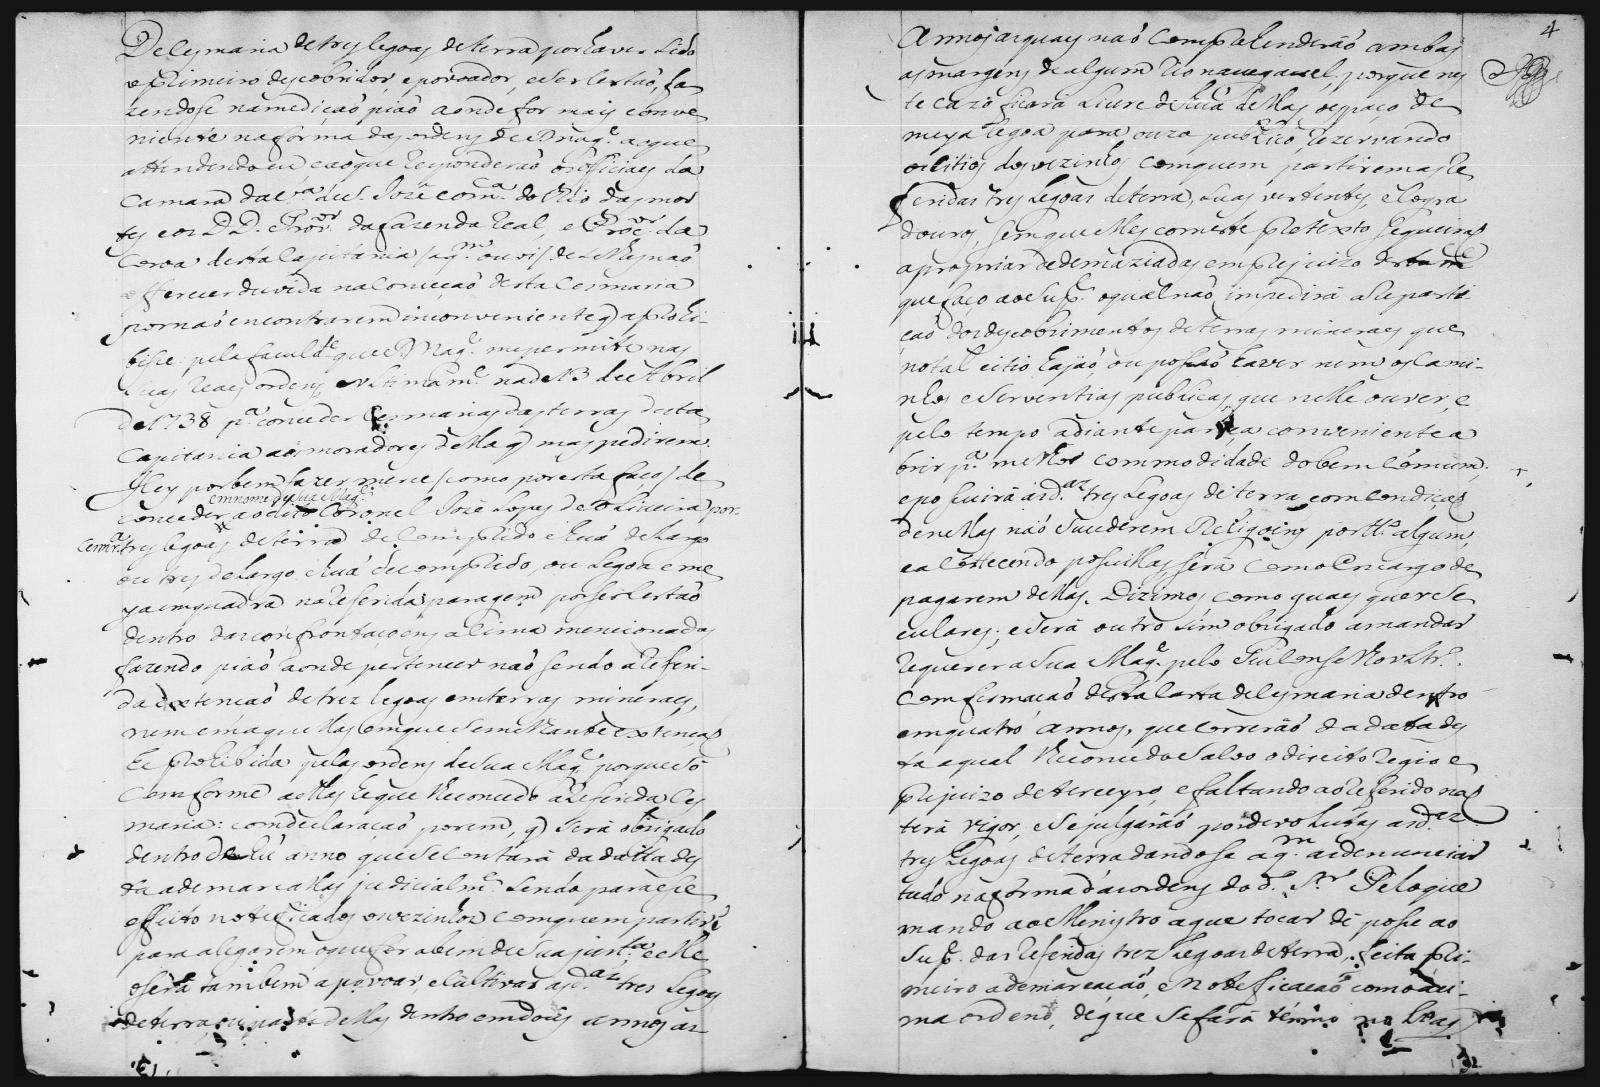 De cesmaria de tres legoas de terra por haver sido
o primeiro descobridor, e povoador, e ser certaõ, fa
zendose na mediçaõ piaõ aonde for mais conve
niente na forma das ordens de S. Mag.e ao que
attendendo eu e ao que responderaõ os officiaes da
Camara da V.a de S. Jozé com.ca do Rio das mor
tes e os D.D. Prov.or da fazenda Real, e Proc.or da
Coroa desta Capitania /aq.m ouvi/ de se lhes naõ
offerecer duvida na Conceçaõ desta Cesmaria
por naõ encontrarem inconveniente q a prohi-
bisse: pela faculd.e que S. Mag.e me permite nas
suas reaes ordens, e ultimam.e na de 13 de Abril
de 1738 p.a conceder Cesmarias das terras desta
Capitania aos moradores della q mas pedirem.
Hey por bem fazer merce /como por esta faço/ de
em nome de Sua Mag.e
conceder ao dito Coronel Jozé Lopes de Oliveira por-
Cesm.a tres legoas de terra de comprido e huá de largo
ou tres de largo, e huá de comprido, ou legoa e me
ya em quadra na referida paragem por ser certaõ
dentro das confrontaçoens aSima mencionadas
fazendo piaõ aonde pertencer naõ sendo a referi-
da extençaõ de trez legoas em terras mineraes,
nem em aquellas em que Semelhante extençaõ
he prohibida pelas ordens de Sua Mag.e porque só
conforme aellas he que lhe concedo a referida ces
maria: com declaraçaõ porem, q Será obrigado
dentro de hú anno que se contará da datta des
ta a demarcallas judicialm.e sendo para esse
effeito notificados os vezinhos com quem partir
para alegarem o que for abem de Sua just.ca e elle
o será tambem a povoar, e cultivar as d.as tres legoas
de terra, ou parte dellas dentro em dous annos as
4
Annos as quaes naõ comprehenderáõ ambas
as margens de algum rio navegavel, porque nes
te cazo ficará livre de huá dellas o espaço de
meya legoa para o uzo publico rezervando
os citios dos vezinhos com quem partirem as re
feridas tres legoas de terra, suas vertentes, e logra
douros, sem que elles com este pretexto se queiraõ
apropriar de demaziadas em prejuizo desta m.ce
que faço ao Sup.e o qual naõ impedirá a reparti
caõ dos descobrimentos de terras mineraes que
no tal citio hajaõ, ou possaõ haver nem os cami-
nhos e Serventias publicas, que nelle ouver, e
pelo tempo adiante pareça conveniente a
brir p.a melhor commodidade do bem Comum,
e possuirá as d.as tres legoas de terra com condiçaõ
de nellas naõ sucederem Religioens por tt.o algum,
e acontecendo possuillas será com o encargo de
pagarem dellas Dizimos como quaes quer Se
culares; e Será outro sim obrigado a mandar
requerer a Sua Mag.e pelo Seu Conselho Ultr.o
comfirmaçaõ desta Carta de Cesmaria dentro
em quatro annos, que correráõ da data des
ta a qual lhe concedo Salvo o direito regio e
prejuizo de terceyro, e faltando ao referido naõ
terá vigor, e se julgaráõ por devolutas as d.as
tres legoas de terra dandose a q.m as denunciar
tudo na forma das ordens do d.o S.r Pelo que
mando ao Menistro a que tocar dé posse ao
Sup.e das referidas trez legoas de terra, feita pri-
meiro a demarcaçaõ, e Noteficaçaõ como aci-
ma ordeno, de que se fará termo no